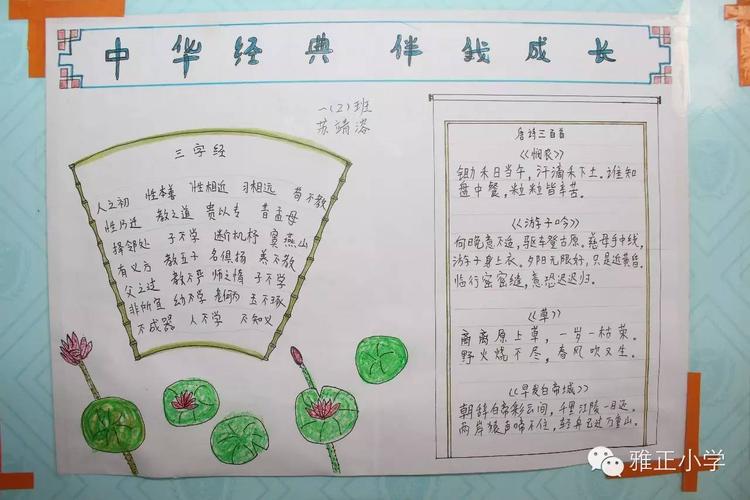 中华经典伴我成长
一(2)班
苏靖
三字经
人之初 性本善 性相近 习相远 苟不教
性乃迁 教之道 贵以专 昔孟母
择邻处 子不学 断机杼 窦燕山
有义方 教五子 名俱扬 养不教
父之过 教不严 师之惰 子不学
非所宜 幼不学 老何为 玉不琢
不成器 人不学 不知义
唐诗三百首
《悯农》
锄禾日当午，汗滴禾下土。谁知
盘中餐，粒粒皆辛苦。
《游子吟》
向晚意不适，驱车登古原。慈母手中线，
游子身上衣，夕阳无限好，只是近黄昏。
临行密密缝，意恐迟迟归。
《草》
离离原上草，一岁一枯荣。
野火烧不尽，春风吹又生。
《早发白帝城》
朝辞白帝彩云间，千里江陵一日还。
两岸猿声啼不住，轻舟已过万重山。
雅正小学